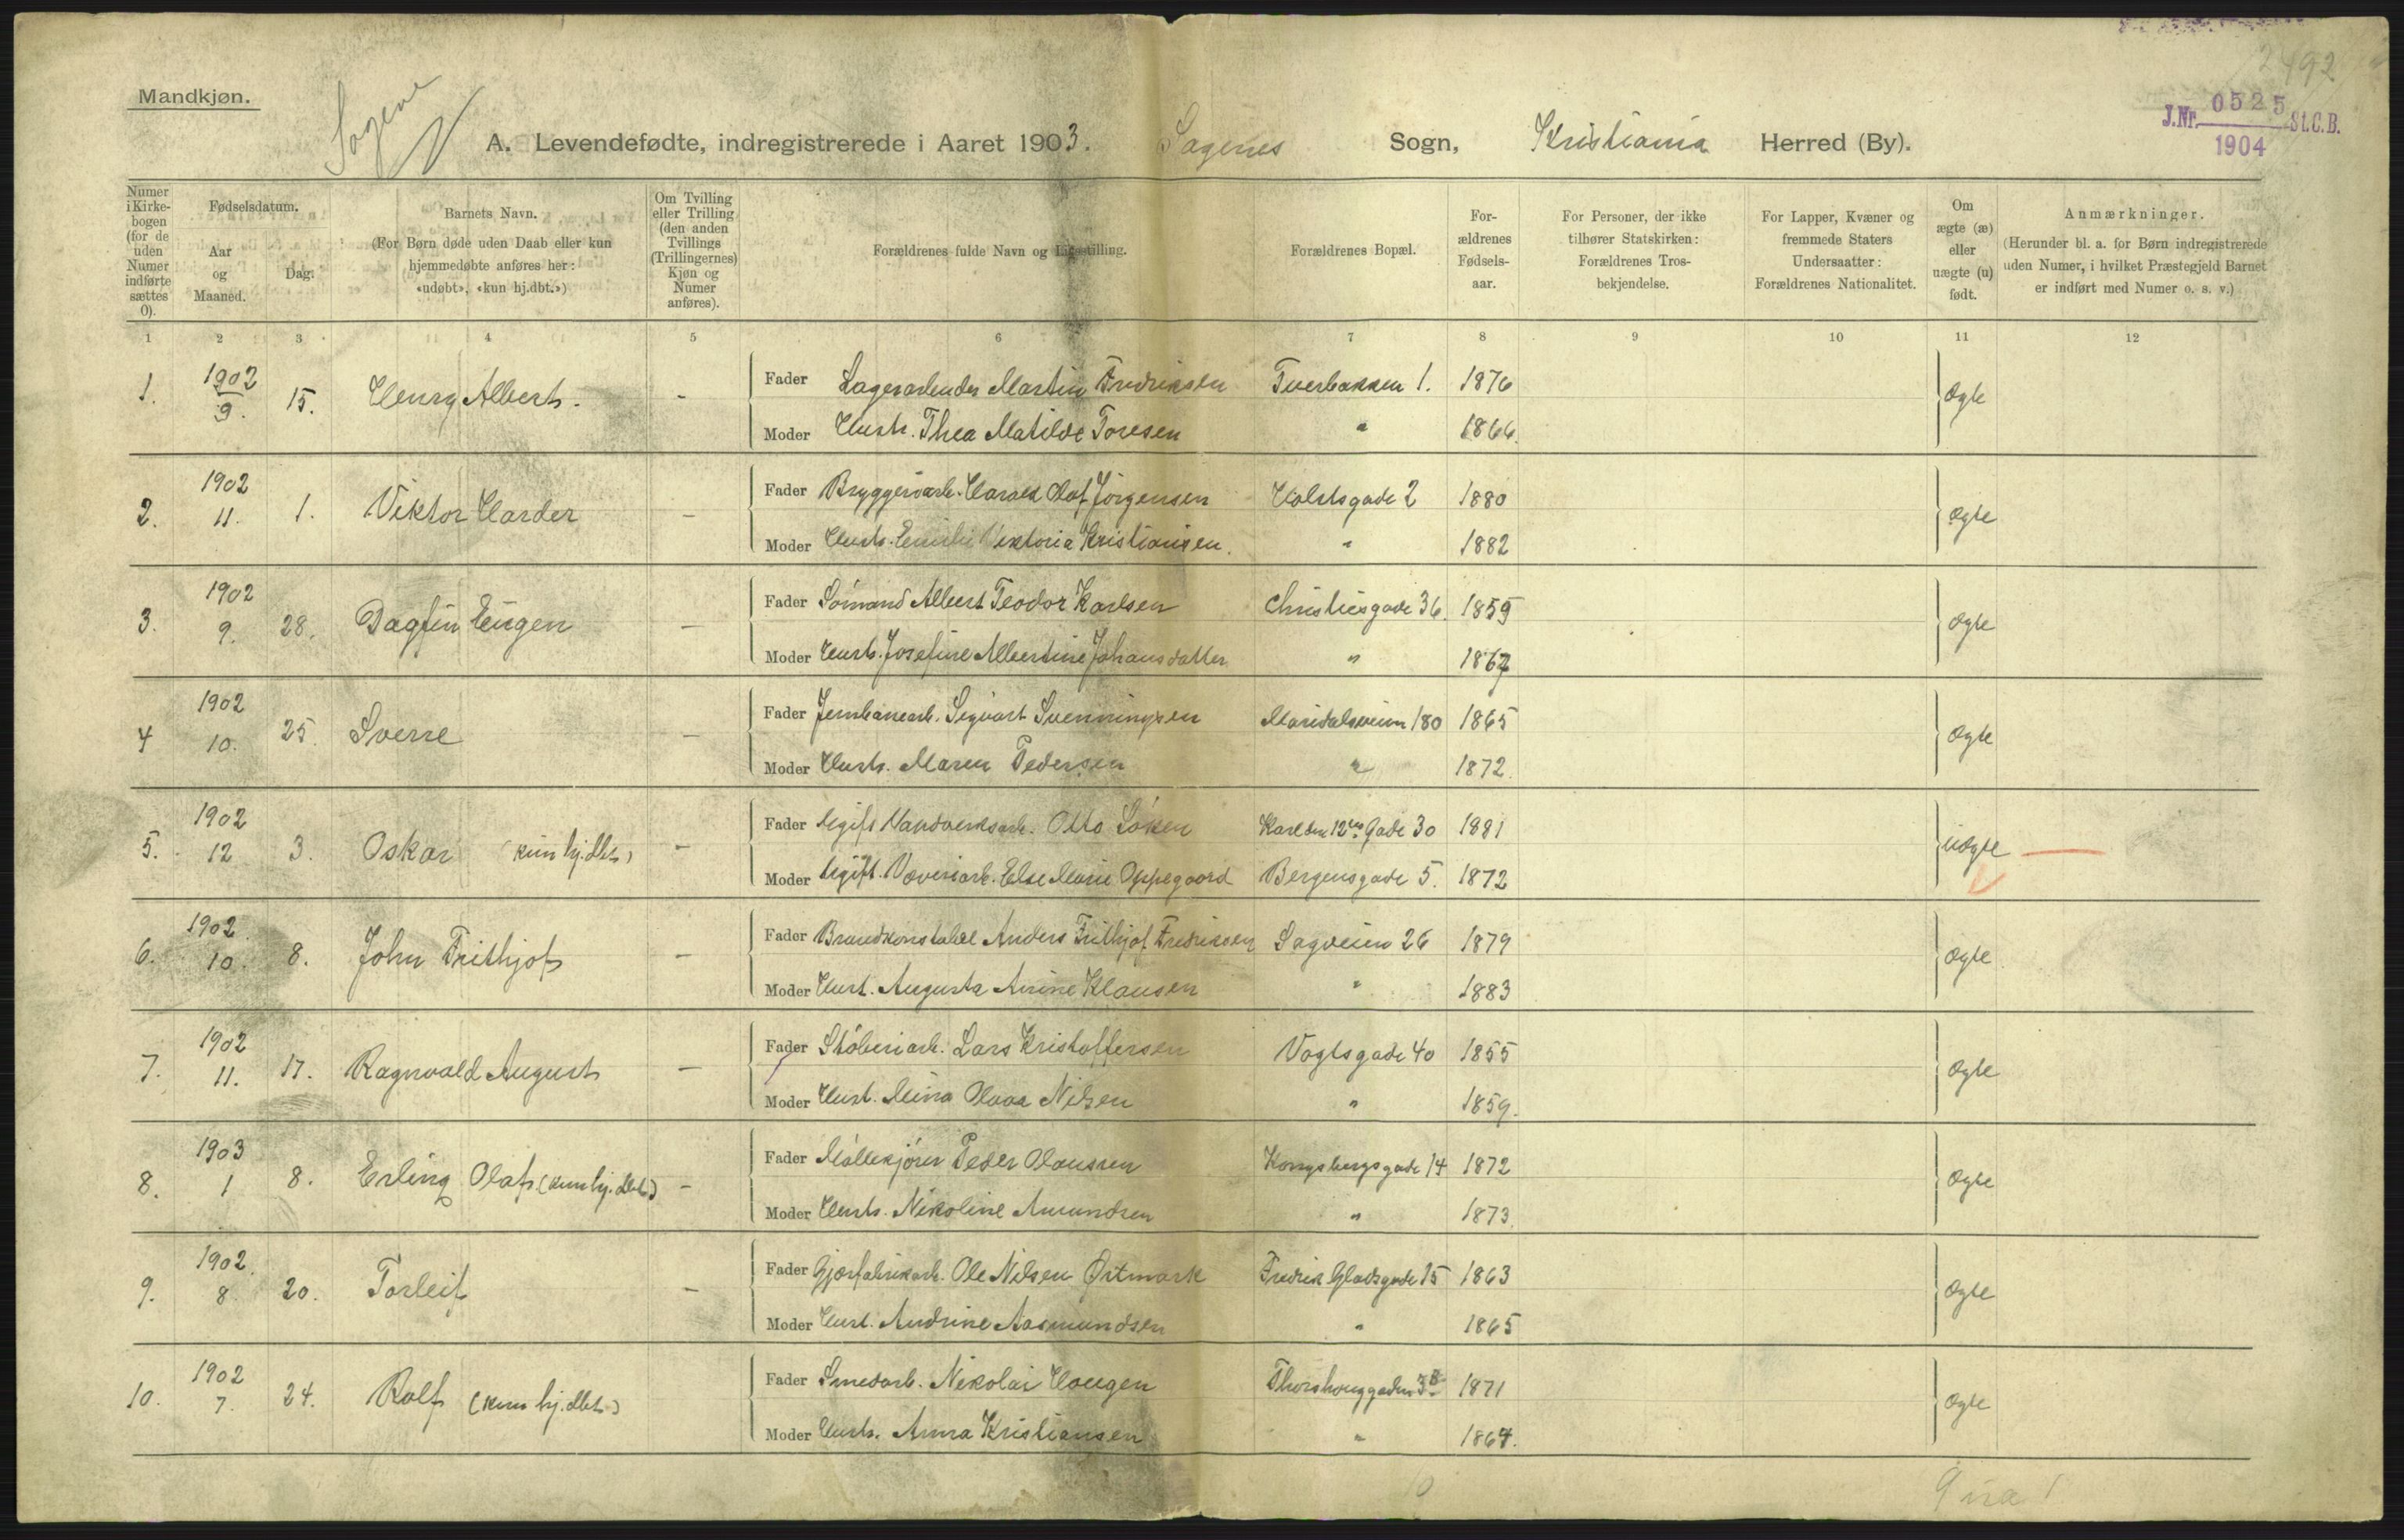 2492
Mandkjøn.
Sagene
J.Nr. 0525 St.C.B.
1904
A. Levendefødte, indregistrerede i Aaret 1903. Sagenes Sogn, Kristiania Herred (By).
Numer i Kirkebogen (for de uden Numer indførte sættes 0).
Fødselsdatum.
Aar og Maaned.
Dag.
Barnets Navn.
(For Børn døde uden Daab eller kun hjemmedøbte anføres her: «udøbt», «kun hj.dbt.»)
Om Tvilling eller Trilling (den anden Tvillings (Trillingernes) Kjøn og Numer anføres).
Forældrenes fulde Navn og Livsstilling.
Forældrenes Bopæl.
Forældrenes Fødselsaar.
For Personer, der ikke tilhører Statskirken: Forældrenes Trosbekjendelse.
For Lapper, Kvæner og fremmede Staters Undersaatter: Forældrenes Nationalitet.
Om ægte (æ) eller uægte (u) født.
Anmærkninger.
(Herunder bl. a. for Børn indregistrerede uden Numer, i hvilket Præstegjeld Barnet er indført med Numer o. s. v.)
1 2 3 4 5 6 7 8 9 10 11 12
1. 1902 9. 15. Henry Albert. - Fader Lagerarbeider Martin Fredriksen Tverbakken 1. 1876 ægte
Moder Hustr. Thea Matilde Toresen " 1866.
2. 1902 11. 1. Viktor Harder - Fader Bryggeriarb. Harald Olaf Jörgensen Holstsgade 2 1880 ægte
Moder Hustr. Emilie Viktoria Kristiansen. " 1882
3. 1902 9. 28. Dagfin Eugen - Fader Sömand Albert Teodor Karlsen Christiesgade 36. 1859 ægte
Moder Hustr. Josefine Albertine Johansdatter " 1867
4 1902 10. 25. Sverre - Fader Jernbanearb. Sigvart Svenningsen Maridalsveien 180 1865 ægte
Moder Hustr. Maren Pedersen " 1872.
5. 1902 12 3. Oskar (kun hj.dbt) - Fader Ugift Vandverksarb. Otto Löken Karl den 12tes Gade 30 1881 uægte
Moder Ugift Væveriarb. Else Marie Oppegaard Bergensgade 5. 1872
6. 1902 10. 8. John Frithjof - Fader Brandkonstabel Anders Frithjof Fredriksen Sagveien 26 1879 ægte
Moder Hust. Augusta Anine Klausen " 1883
7. 1902 11. 17. Ragnvald August - Fader Stöberiarb. Lars Kristoffersen Vogtsgade 40 1855 ægte
Moder Hust. Mina Olava Nilsen " 1859.
8. 1903 1 8. Erling Olaf (kun hj.dbt) - Fader Möllekjörer Peder Olaussen Kongsbergsgade 14 1872 ægte
Moder Hustr. Nikoline Amundsen " 1873.
9. 1902. 8 20. Torleif - Fader Gjærfabrikarb. Ole Nilsen Østmark Fredrik Gladsgade 15 1863 ægte
Moder Hust. Andrine Aasmundsen " 1865
10. 1902 7. 24. Rolf (kun hj.dbt.) - Fader Smedarb. Nikolai Haugen Thorshauggaden 3B 1871 ægte
Moder Hustr. Anna Kristiansen " 1864.
10